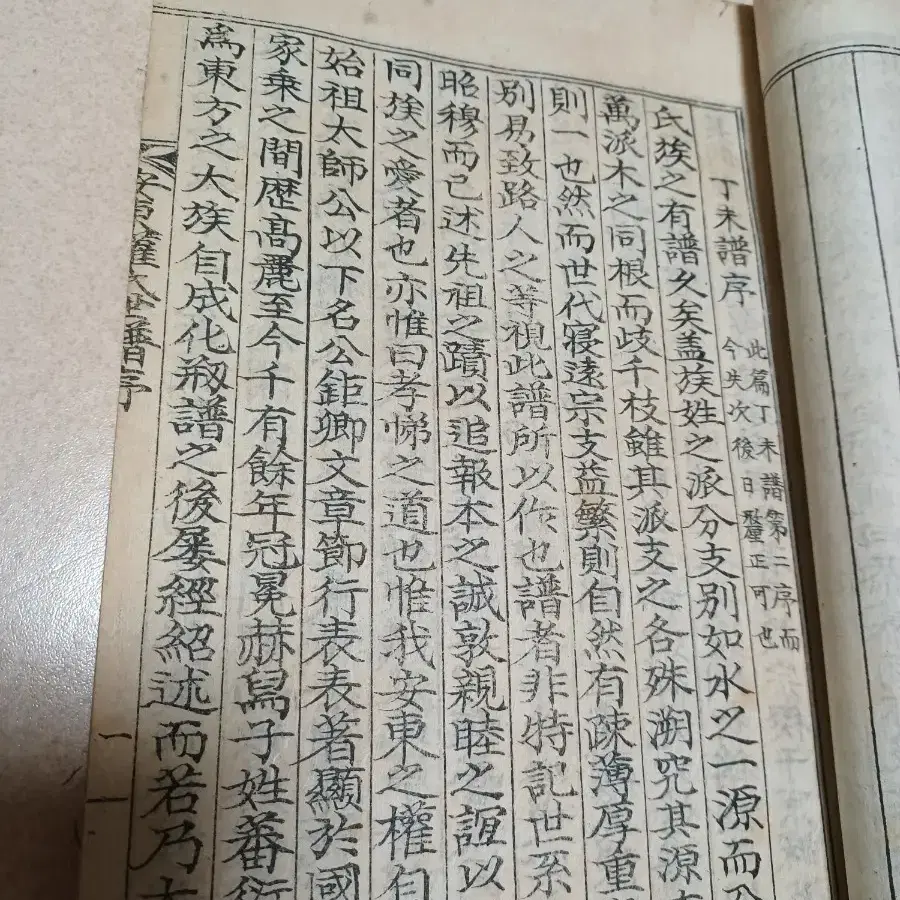 丁未譜序
此篇丁未譜第二序而
今失次後日釐正可也
氏族之有譜久矣盖族姓之派分支別如水之一源而分
萬派木之同根而歧千枝雖其派支之各殊溯究其源
則一也然而世代寖遠宗支益繁則自然有疎薄厚重
別易致路人之等視此譜所以作也譜者非特記世系
昭穆而已述先祖之蹟以追報本之誠敦親睦之誼以
同族之愛者也亦惟曰孝悌之道也惟我安東之權自
始祖太師公以下名公鉅卿文章節行表表著顯於國
家乗之間歷高麗至今千有餘年冠冕赫舃子姓蕃衍
爲東方之大族自成化刱譜之後屡經紹述而若乃
安東權氏世譜序
一